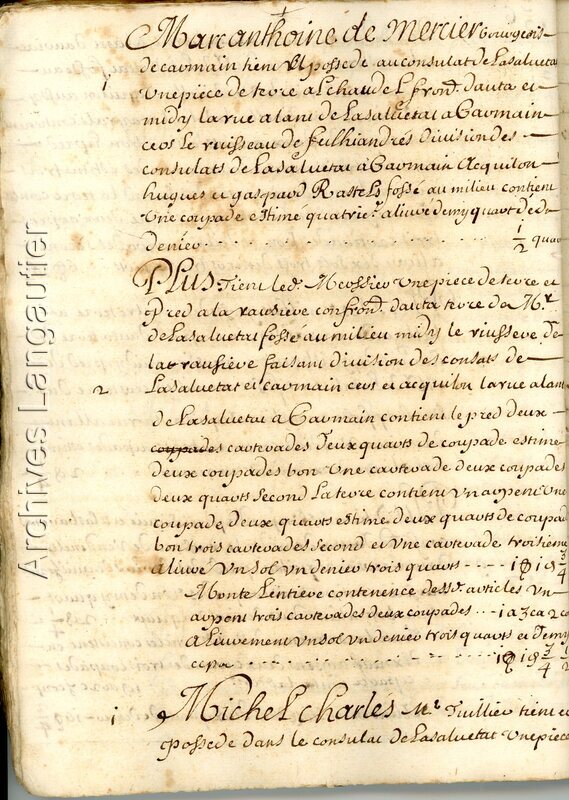 Marcanthoine de Mercier bourgeois
de carmain tient et possede au consulat de Lasaluetat
1 Une piece de terre a Lchaudel fron.d dauta et
midy la rue alant de Lasaluetat a Carmain
cers le ruisseau de division des
consulats de Lasaluetat a Carmain Acquilon
hugues et gaspard Rastels fossé au milieu contient
Une coupade estime quatrie.e aliuré demy quart de
denier 1/2 quar
PLUS Tient led. Merssier Une piece de terre et
Pred a la rausiere confron.d dauta terre de M.r
de Lasaluetat fossé au milieu midy le de
la rausiere faisant division des consats de
2 Lasaluetat et carmain cers et acquilon la rue alant
de Lasaluetat a Carmain contient le pred deux
coupades carterades deux quarts de coupade estime
deux coupades bon Une carterade deux coupades
deux quarts second La terre contient Un arpent Une
coupade deux quarts estime deux quarts de coupade
bon trois carterades second et Une carterade troisieme
aliure Un sol Un denier trois quarts 3/4
Monte Lentiere contenence desd. articles Un
arpent trois carterades deux coupades 1a 3ca 2co
aliurement Un sol Un denier trois quarts et demy
3/4 1/2
1 Michel charles M.r Tuillier tient et
possede dans le consulat de Lasaluetat Une piece
Archives Langautier